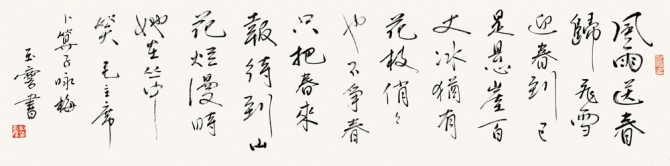 風雨送春
歸飛雪
迎春到已
是懸崖百
丈冰猶有
花枝俏々
也不爭春
只把春來
報待到山
花烂漫時
她在丛中
笑 毛主席
卜算子咏梅
玉書